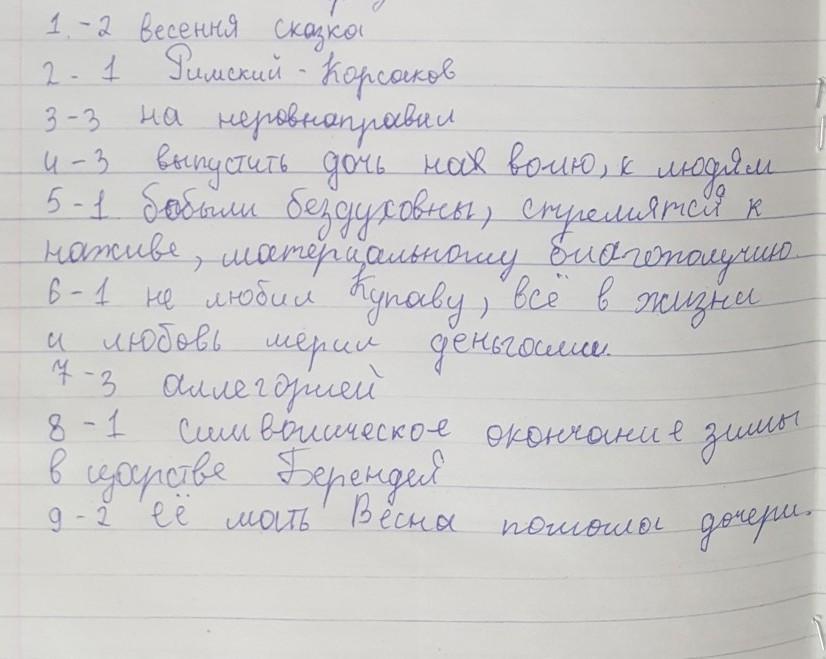 1.-2 весення сказка
2-1 Римский-Корсаков
3-3 на неровнаправил
4-3 выпустить дочь на волю, к людям
5-1 бобыли бездуховны, стремятся к
наживе, материальному благополучию.
6-1 не любил Купаву, всё в жизни
и любовь мерил деньгами.
7-3 аллегорией
8-1 символическое окончание зимы
в царстве Берендея
9-2 её мать Весна помогла дочери.